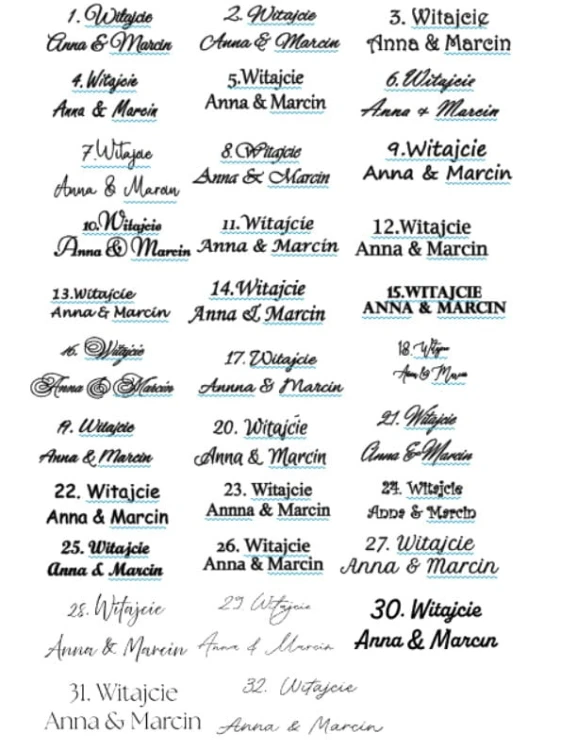 1. Witajcie
Anna & Marcin
2. Witajcie
Anna & Marcin
3. Witajcie
Anna & Marcin
4. Witajcie
Anna & Marcin
5.Witajcie
Anna & Marcin
6.Witajcie
Anna & Marcin
7.Witajcie
Anna & Marcin
8.Witajcie
Anna & Marcin
9.Witajcie
Anna & Marcin
10.Witajcie
Anna & Marcin
11.Witajcie
Anna & Marcin
12.Witajcie
Anna & Marcin
13.Witajcie
Anna & Marcin
14.Witajcie
Anna & Marcin
15.WITAJCIE
ANNA & MARCIN
16. Witajcie
Anna & Marcin
17. Witajcie
Annna & Marcin
18. Witajcie
Anna & Marcin
19. Witajcie
Anna & Marcin
20. Witajcie
Anna & Marcin
21. Witajcie
Anna & Marcin
22. Witajcie
Anna & Marcin
23. Witajcie
Annna & Marcin
24. Witajcie
Anna & Marcin
25. Witajcie
Anna & Marcin
26. Witajcie
Anna & Marcin
27. Witajcie
Anna & Marcin
28. Witajcie
Anna & Marcin
29. Witajcie
Anna & Marcin
30. Witajcie
Anna & Marcin
31. Witajcie
Anna & Marcin
32. Witajcie
Anna & Marcin